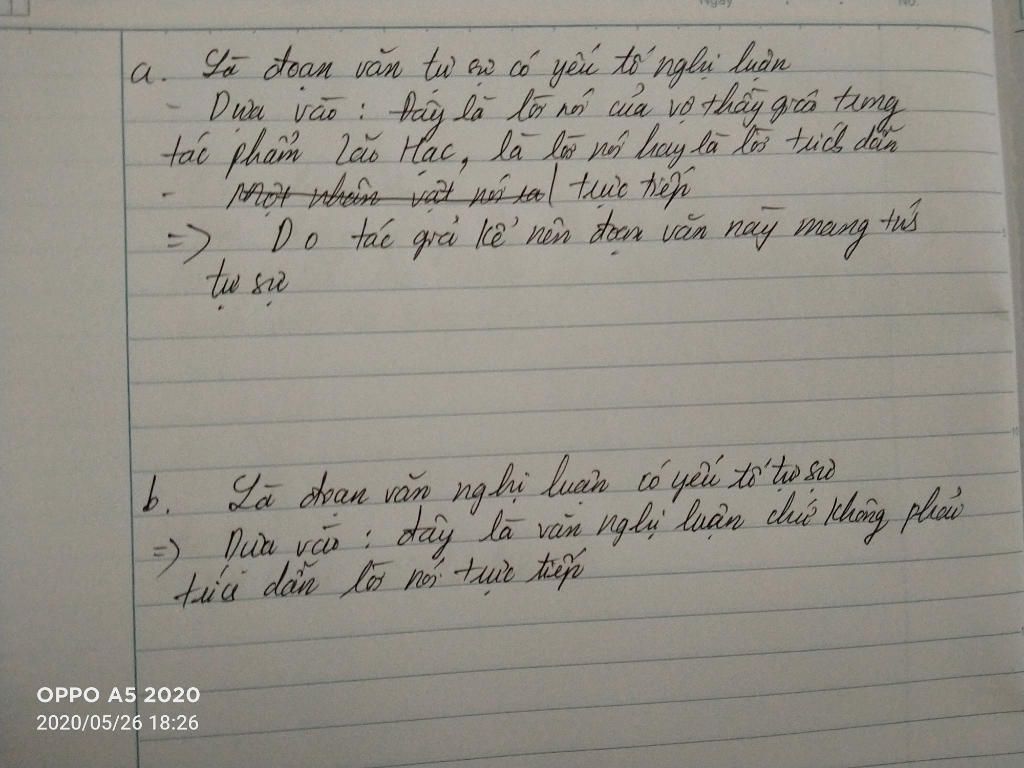 Ngày No.
a. Là đoạn văn tự sự có yếu tố nghị luận
- Dựa vào : Đây là lời nói của vợ thầy giáo trong
tác phẩm Lão Hạc, là lời nói hay là lời trích dẫn
- Một nhân vật nói ra trực tiếp
=> Do tác giả kể nên đoạn văn này mang tính
tự sự
b. Là đoạn văn nghị luận có yếu tố tự sự
=> Dựa vào : đây là văn nghị luận chứ không phải
trích dẫn lời nói trực tiếp
OPPO A5 2020
2020/05/26 18:26